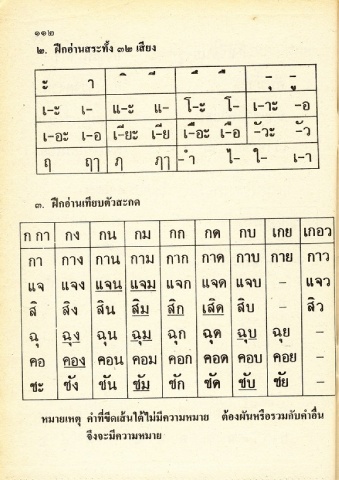 ๑๑๒
๒. ฝึกอ่านสระทั้ง ๓๒ เสียง
ะ า ิ ี ึ ื ุ ู
เ-ะ เ- แ-ะ แ- โ-ะ โ- เ-าะ -อ
เ-อะ เ-อ เ-ียะ เ-ีย เ-ือะ เ-ือ -ัวะ -ัว
ฤ ฤๅ ฦ ฦๅ -ำ ไ- ใ- เ-า
๓. ฝึกอ่านเทียบตัวสะกด
ก กา กง กน กม กก กด กบ เกย เกอว
กา กาง กาน กาม กาก กาด กาบ กาย กาว
แจ แจง แจน แจม แจก แจด แจบ - แจว
สิ สิง สิน สิม สิก เสิด สิบ - สิว
ฉุ ฉุง ฉุน ฉุม ฉุก ฉุด ฉุบ ฉุย -
คอ คอง คอน คอม คอก คอด คอบ คอย -
ชะ ชัง ชัน ชัม ชัก ชัด ชับ ชัย -
หมายเหตุ คำที่ขีดเส้นใต้ไม่มีความหมาย ต้องผันหรือรวมกับคำอื่น
จึงจะมีความหมาย